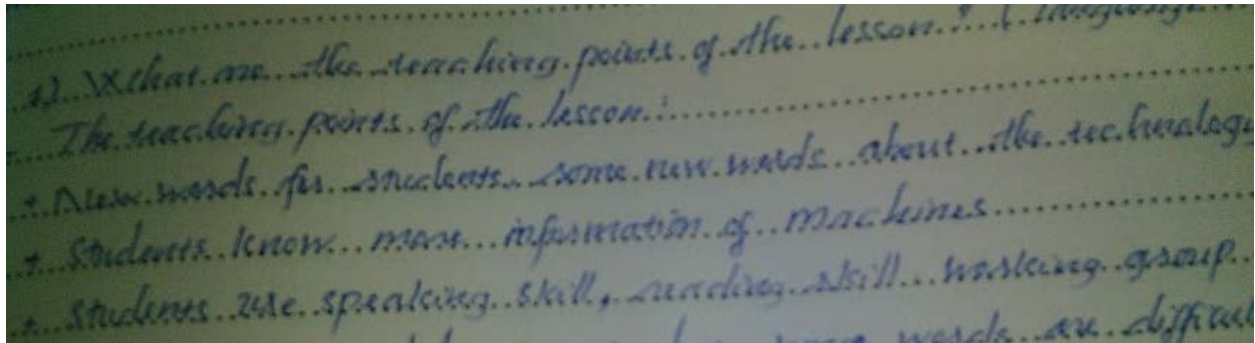 1) What are the teaching points of the lesson? (language
The teaching points of the lesson:
+ New words for students some new words about the technology
+ Students know more information of machines
+ Students use speaking skill, reading skill working group
words are difficul